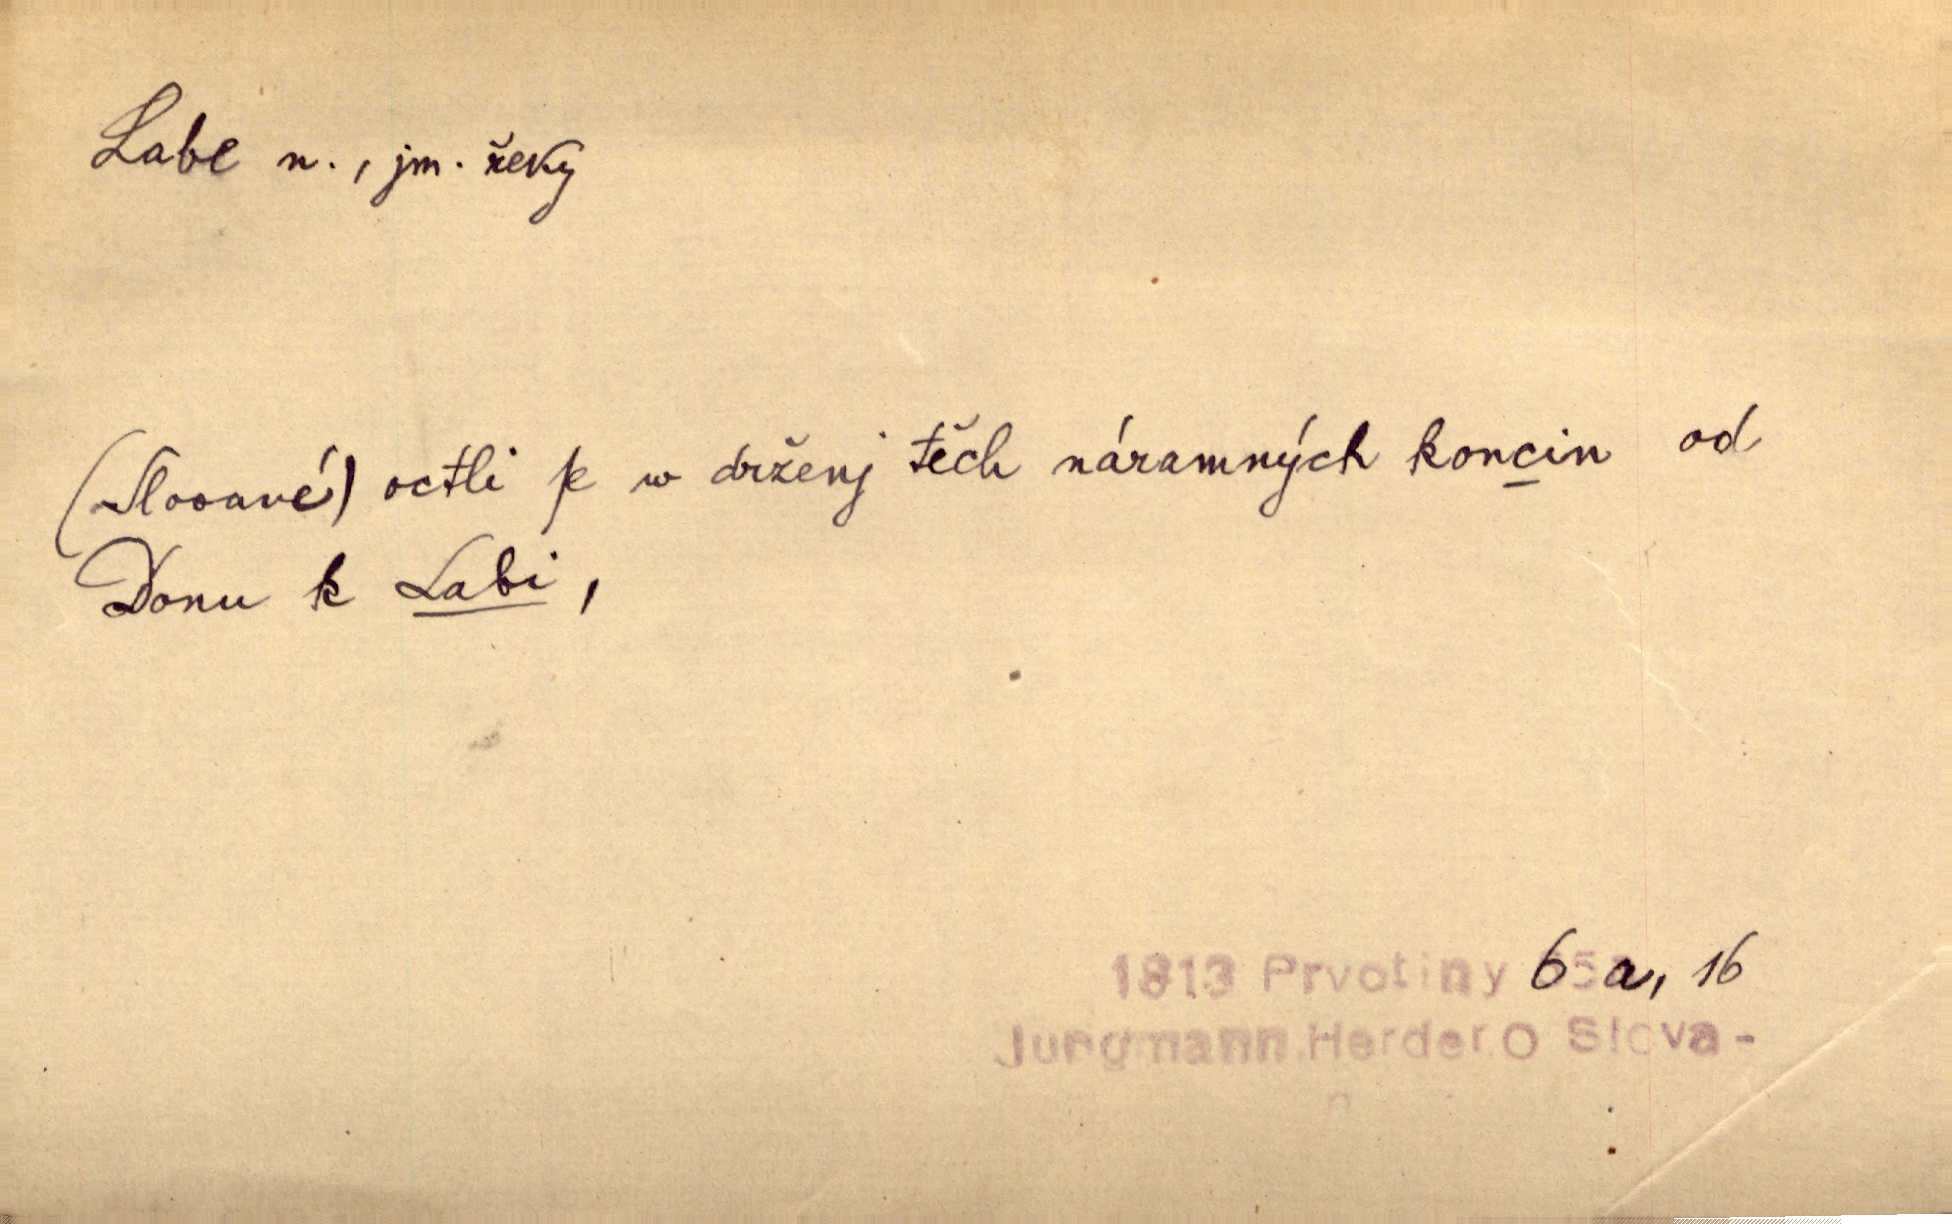 Labe n., jm. řeky
(Slované) octli ſe w drženj těch náramných koncin od
Donu k Labi,
1813 Prvotiny 6 a, 16
Jungmann.Herder.O Slova-